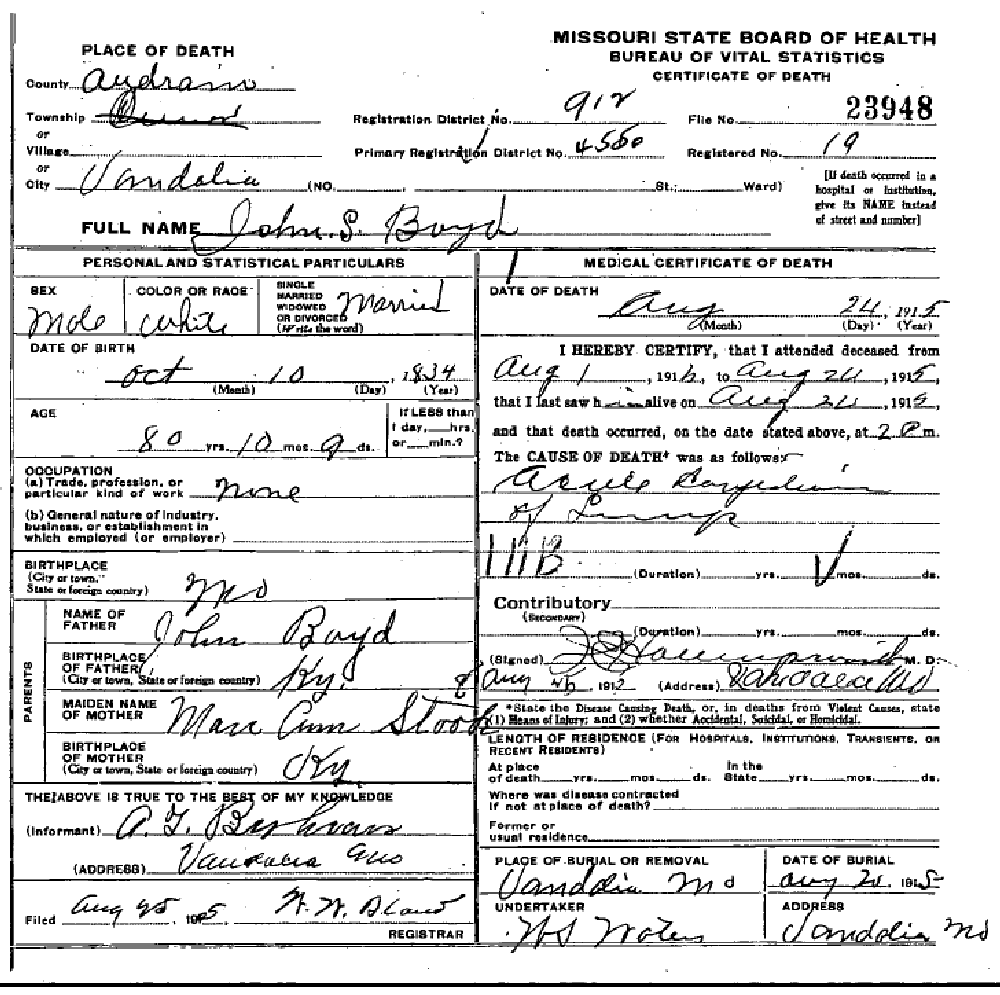 MISSOURI STATE BOARD OF HEALTH
BUREAU OF VITAL STATISTICS
CERTIFICATE OF DEATH
PLACE OF DEATH
County Audrain
Township
or
Village
or
City Vandalia (NO. St.; Ward)
Registration District No. 912
File No. 23948
Primary Registration District No. 4550
Registered No. 19
[If death occurred in a
hospital or institution,
give its NAME instead
of street and number]
FULL NAME John S. Boyd
PERSONAL AND STATISTICAL PARTICULARS
SEX
Male
COLOR OR RACE
White
SINGLE
MARRIED
WIDOWED
OR DIVORCED
(Write the word)
Married
DATE OF BIRTH
Oct 10, 1834
(Month) (Day) (Year)
AGE
80 yrs. 10 mos. 9 ds.
If LESS than
1 day, hrs.
or min.?
OCCUPATION
(a) Trade, profession, or
particular kind of work none
(b) General nature of industry,
business, or establishment in
which employed (or employer)
BIRTHPLACE
(City or town,
State or foreign country)
Mo
PARENTS
NAME OF
FATHER
John Boyd
BIRTHPLACE
OF FATHER
(City or town, State or foreign country)
Ky.
MAIDEN NAME
OF MOTHER
Ann
BIRTHPLACE
OF MOTHER
(City or town, State or foreign country)
Ky
THE ABOVE IS TRUE TO THE BEST OF MY KNOWLEDGE
(Informant)
(ADDRESS) Vandalia Mo
Filed Aug 25, 1915
REGISTRAR
MEDICAL CERTIFICATE OF DEATH
DATE OF DEATH
Aug 24, 1915
(Month) (Day) (Year)
I HEREBY CERTIFY, that I attended deceased from
Aug 1, 191 to Aug 24, 1915,
that I last saw him alive on Aug 24, 1915,
and that death occurred, on the date stated above, at 2 P m.
The CAUSE OF DEATH* was as follows:
Acute Congestion
of Lungs
111B
(Duration) yrs. mos. ds.
Contributory
(SECONDARY)
(Duration) yrs. mos. ds.
(Signed) M. D.
Aug 191 (Address) Vandalia Mo
*State the Disease Causing Death, or, in deaths from Violent Causes, state
(1) Means of Injury; and (2) whether Accidental, Suicidal, or Homicidal.
LENGTH OF RESIDENCE (FOR HOSPITALS, INSTITUTIONS, TRANSIENTS, OR
RECENT RESIDENTS)
At place
of death yrs. mos. ds.
In the
State yrs. mos. ds.
Where was disease contracted
if not at place of death?
Former or
usual residence
PLACE OF BURIAL OR REMOVAL
Vandalia Mo
DATE OF BURIAL
Aug 1915
UNDERTAKER
WS Waters
ADDRESS
Vandalia Mo